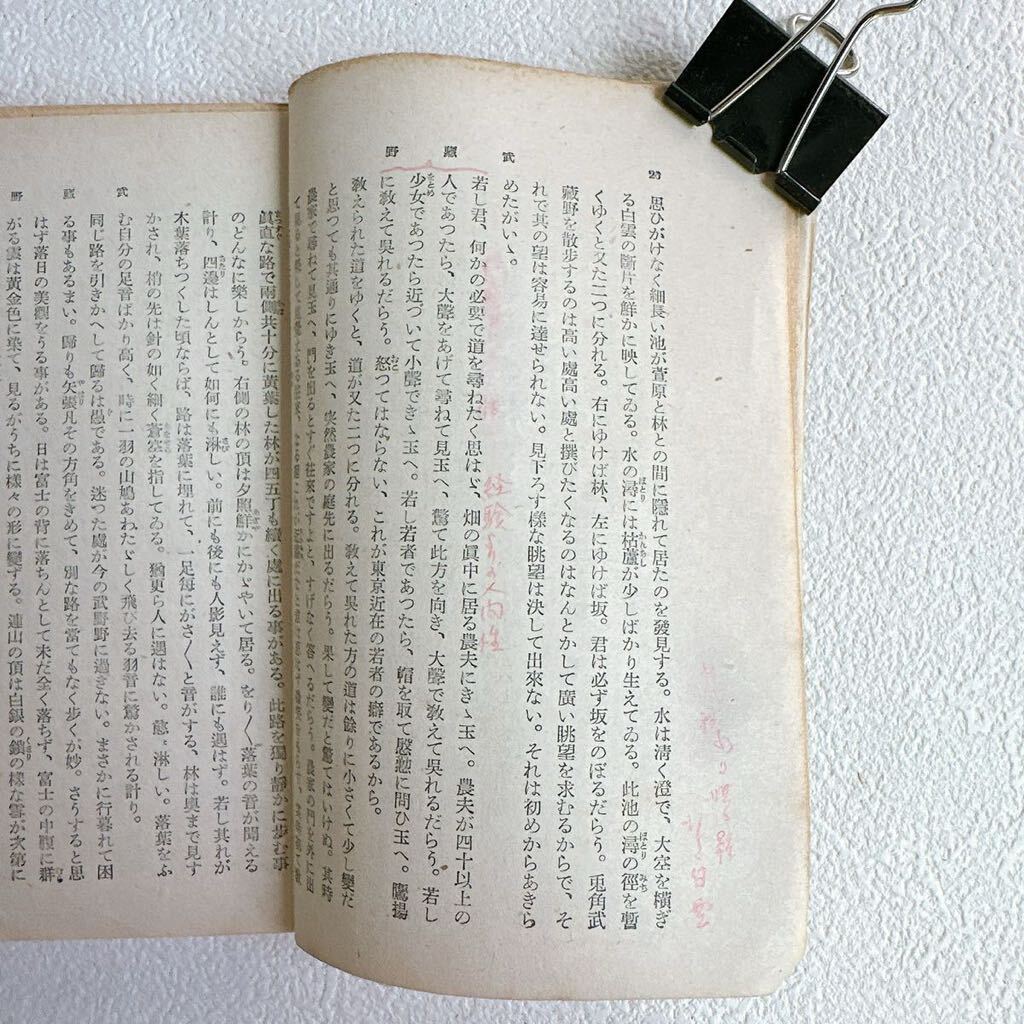 武藏野
思ひがけなく細長い池が萱原と林との間に隱れて居たのを發見する。水は淸く澄で、大空を橫ぎ
る白雲の斷片を鮮かに映してゐる。水の潯には枯蘆が少しばかり生えてゐる。此池の潯の徑を暫
くゆくと又た二つに分れる。右にゆけば林、左にゆけば坂。君は必ず坂をのぼるだらう。兎角武
藏野を散步するのは高い處高い處と撰びたくなるのはなんとかして廣い眺望を求むるからで、そ
れで其の望は容易に達せられない。見下ろす樣な眺望は決して出來ない。それは初めからあきら
めたがいゝ。
若し君、何かの必要で道を尋ねたく思はゞ、畑の眞中に居る農夫にきゝ玉へ。農夫が四十以上の
人であつたら、大聲をあげて尋ねて見玉へ、驚て此方を向き、大聲で敎えて吳れるだらう。若し
少女であつたら近づいて小聲できゝ玉へ。若し若者であつたら、帽を取て慇懃に問ひ玉へ。鷹揚
に敎えて吳れるだらう。怒つてはならない、これが東京近在の若者の癖であるから。
敎えられた道をゆくと、道が又た二つに分れる。敎えて吳れた方の道は餘りに小さくて少し變だ
と思つても其通りにゆき玉へ、突然農家の庭先に出るだらう。果して變だと驚てはいけぬ。其時
農家で尋ねて見玉へ、門を出るとすぐ往來ですよと、すげなく答へるだらう。農家の門を外に出
經驗よりの人間性
白雲
武藏野
眞直な路で兩側共十分に黃葉した林が四五丁も續く處に出る事がある。此路を獨り靜かに步む事
のどんなに樂しからう。右側の林の頂は夕照鮮かにかゞやいて居る。をり〱落葉の音が聞える
計り、四邊はしんとして如何にも淋しい。前にも後にも人影見えず、誰にも遇はず。若し其れが
木葉落ちつくした頃ならば、路は落葉に埋れて、一足每にがさ〱と音がする、林は奧まで見す
かされ、梢の先は針の如く細く蒼空を指してゐる。猶更ら人に遇はない。愈〻淋しい。落葉をふ
む自分の足音ばかり高く、時に一羽の山鳩あわたゞしく飛び去る羽音に驚かされる計り。
同じ路を引きかへして歸るは愚である。迷つた處が今の武藏野に過ぎない。まさかに行暮れて困
る事もあるまい。歸りも矢張凡その方角をきめて、別な路を當てもなく步くが妙。さうすると思
はず落日の美觀をうる事がある。日は富士の背に落ちんとして未だ全く落ちず、富士の中腹に群
がる雲は黃金色に染て、見るがうちに樣々の形に變ずる。連山の頂は白銀の鎖の樣な雪が次第に